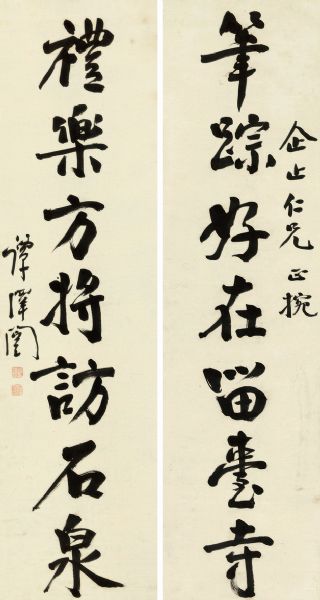 企止仁兄正捥
筆踪好在留臺寺
禮樂方將訪石泉
譚澤闓